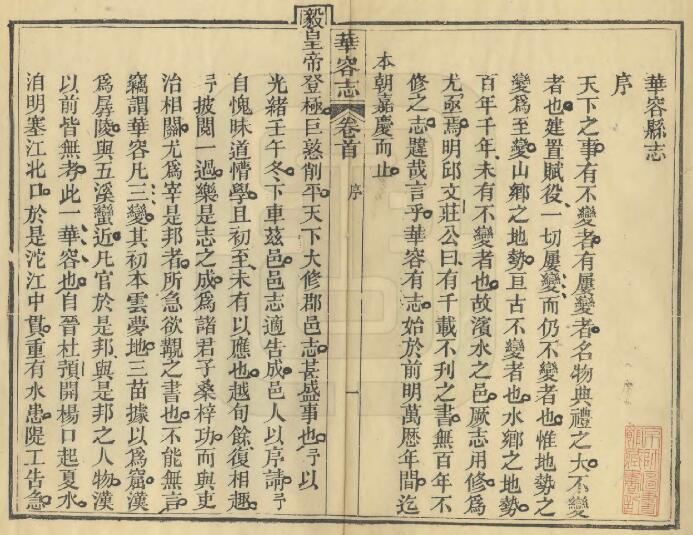 華容縣志
序
天下之事有不變者有屢變者名物典禮之大不變
者也建置賦役一切屢變而仍不變者也惟地勢之
變爲至變山鄉之地勢亘古不變者也水鄉之地勢
百年千年未有不變者也故濱水之邑厥志用修爲
尤亟焉明邱文莊公曰有千載不刊之書無百年不
修之志韙哉言乎華容有志始於前明萬曆年間迄
本朝嘉慶而止
華容志 卷首 序 一
毅皇帝登極巨憝削平天下大修郡邑志甚盛事也予以
光緒壬午冬下車茲邑邑志適告成邑人以序請予
自愧昧道懵學且初至未有以應也越旬餘復相趣
予披閱一過樂是志之成爲諸君子桑梓功而與吏
治相關尤爲宰是邦者所急欲覯之書也不能無言
竊謂華容凡三變其初本雲夢地三苗據以爲窟漢
爲孱陵與五溪蠻近凡官於是邦與是邦之人物漢
以前皆無考此一華容也自晉杜預開楊口起夏水
洎明塞江北口於是沱江中貫重有水患隄工告急